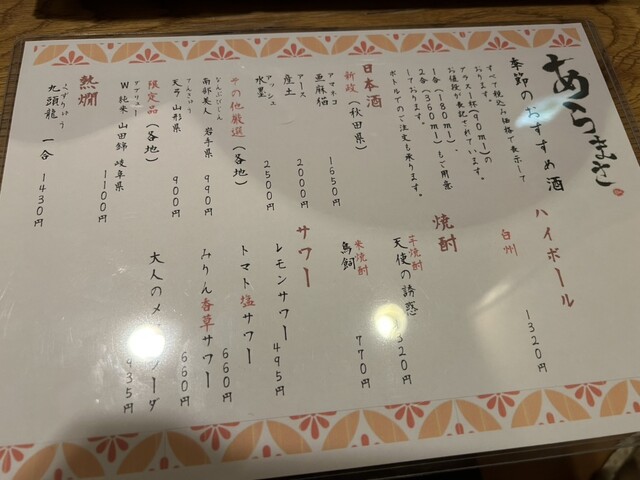 あらまさ
季節のおすすめ酒
すべて税込み価格で表示して
おります。
グラス一杯(90ml)の
お値段が表記されています。
1合(180ml)
2合(360ml)もご用意
しております。
ボトルでのご注文も承ります。
日本酒
新政(秋田県)
アマネコ
亜麻猫 1650円
アース
産土 2000円
アッシュ
水墨 2500円
その他厳選(各地)
なんぶびじん
南部美人 岩手県 990円
てんきゅう
天弓 山形県 900円
限定品(各地)
ダブリュー
W 純米 山田錦 岐阜県
1100円
熱燗
くずりゅう
九頭龍 一合 1430円
ハイボール
白州 1320円
焼酎
芋焼酎
天使の誘惑 1320円
米焼酎
鳥飼 770円
サワー
レモンサワー 495円
トマト塩サワー 660円
みりん香草サワー 660円
大人のメ ソーダ 935円